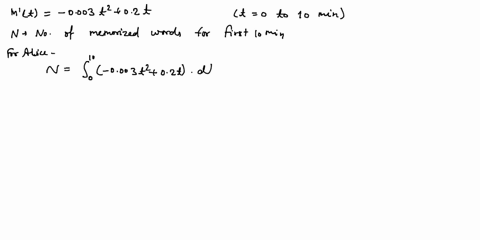 m'(t) = -0.003 t² + 0.2 t (t = 0 to 10 min)
N → No. of memorized words for first 10 min
For Alice -
N = ∫₀¹⁰ (-0.003 t² + 0.2 t) . dN